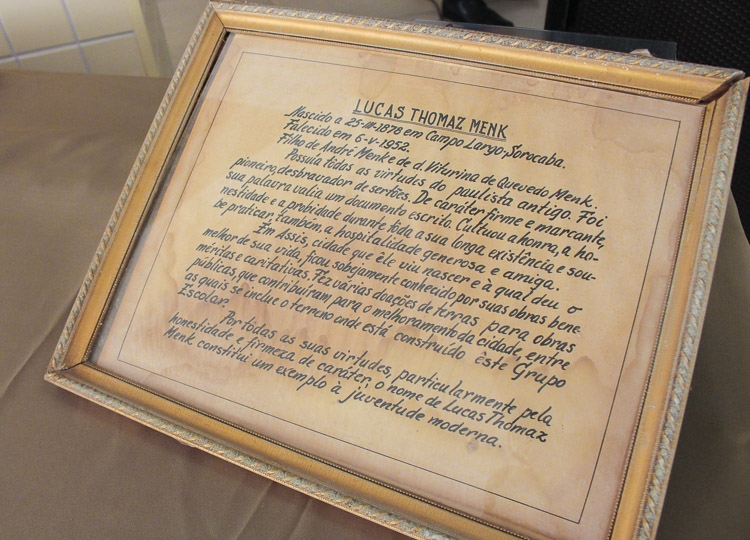 LUCAS THOMAZ MENK
Nascido a 25-III-1878 em Campo Largo, Sorocaba.
Falecido em 6-V-1952.
Filho de André Menk e de d. Viturina de Quevedo Menk.
Possuía tôdas as virtudes do paulista antigo. Foi
pioneiro, desbravador de sertões. De caráter firme e marcante,
sua palavra valia um documento escrito. Cultuou a honra, a ho-
nestidade e a probidade durante tôda a sua longa existência e sou-
be praticar, também, a hospitalidade generosa e amiga.
Em Assis, cidade que êle viu nascer e à qual deu o
melhor de sua vida, ficou sobejamente conhecido por suas obras bene-
méritas e caritativas. Fêz várias doações de terras para obras
públicas, que contribuíram para o melhoramento da cidade, entre
as quais se inclue o terreno onde está construído êste Grupo
Escolar.
Por tôdas as suas virtudes, particularmente pela
honestidade e firmeza de caráter, o nome de Lucas Thomaz
Menk constitui um exemplo à juventude moderna.